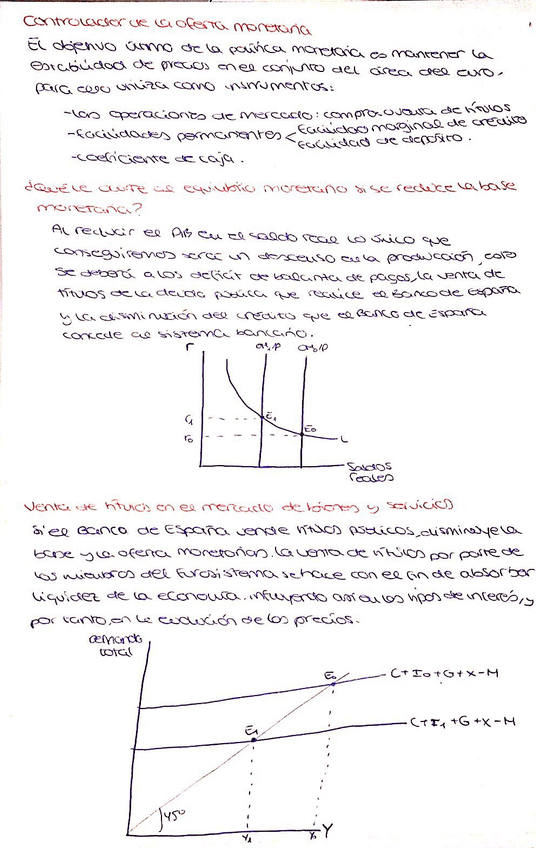 Controlador de la oferta monetaria
El objetivo último de la política monetaria es mantener la
estabilidad de precios en el conjunto del área del euro.
para ello utiliza como instrumentos:
-Las operaciones de mercado: compra o venta de títulos
-Facilidades permanentes < Facilidad marginal de crédito
Facilidad de depósito.
-coeficiente de caja.
¿Qué le ocurre al equilibrio monetario si se reduce la base
monetaria?
Al reducir el AB en el saldo real lo único que
conseguiremos será un descenso en la producción, esto
se deberá a los déficit de balanza de pagos, la venta de
títulos de la deuda pública que realice el Banco de España
y la disminución del crédito que el Banco de España
concede al sistema bancario.
r
r1
r0
E1
E0
L
Saldos
reales
Venta de títulos en el mercado de bienes y servicios
Si el Banco de España vende títulos públicos, disminuye la
base y la oferta monetarias. La venta de títulos por parte de
los miembros del Eurosistema se hace con el fin de absorber
liquidez de la economía, influyendo así en los tipos de interés, y
por tanto, en la evolución de los precios.
demanda
total
E0
C+I0+G+X-M
E1
C+I1+G+X-M
45º
Y1
Y